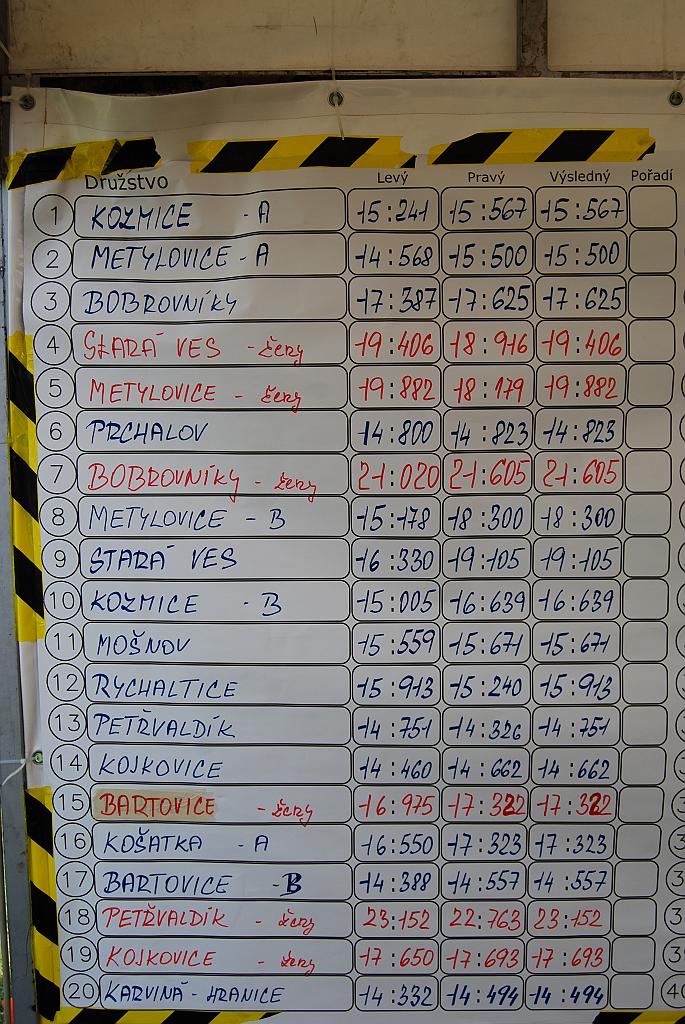 Družstvo Levý Pravý Výsledný Pořadí
1 KOZMICE - A 15:241 15:567 15:567
2 METYLOVICE - A 14:568 15:500 15:500
3 BOBROVNÍKY 17:387 17:625 17:625
4 STARÁ VES - ženy 19:406 18:916 19:406
5 METYLOVICE - ženy 19:882 18:179 19:882
6 PRCHALOV 14:800 14:823 14:823
7 BOBROVNÍKY - ženy 21:020 21:605 21:605
8 METYLOVICE - B 15:178 18:300 18:300
9 STARÁ VES 16:330 19:105 19:105
10 KOZMICE - B 15:005 16:639 16:639
11 MOŠNOV 15:559 15:671 15:671
12 RYCHALTICE 15:913 15:240 15:913
13 PETŘVALDÍK 14:751 14:326 14:751
14 KOJKOVICE 14:460 14:662 14:662
15 BARTOVICE - ženy 16:975 17:322 17:322
16 KOŠATKA - A 16:550 17:323 17:323
17 BARTOVICE - B 14:388 14:557 14:557
18 PETŘVALDÍK - ženy 23:152 22:763 23:152
19 KOJKOVICE - ženy 17:650 17:693 17:693
20 KARVINÁ - HRANICE 14:332 14:494 14:494